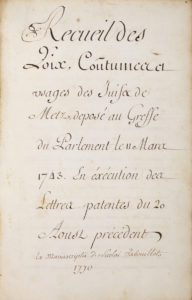 Recueil des
Loix, Coûtumes et
usages des Juifs de
Metz, deposé au Greffe
du Parlement le 11 Mars
1743. En exécution des
Lettres patentes du 20
Aoust précédent
Le Manuscript de Nicolas
1770